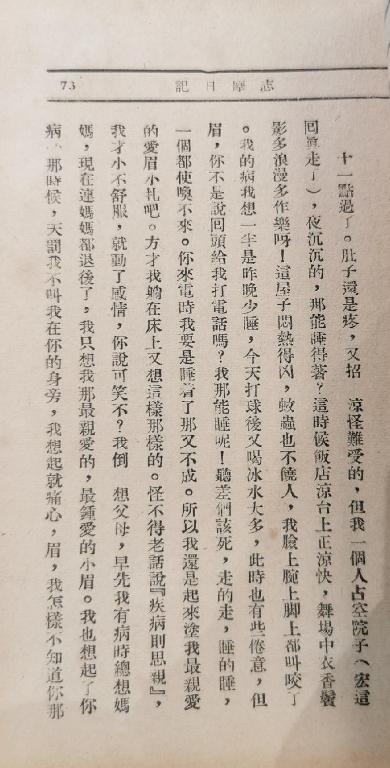 志摩日記
73
十一點過了。肚子還是疼，又招 涼怪難受的，但我一個人占空院子（宏這
回眞走了），夜沉沉的，那能睡得著？這時候飯店涼台上正涼快，舞場中衣香鬢
影多浪漫多作樂呀！這屋子悶熱得凶，蚊蟲也不饒人，我臉上腕上脚上都叫咬了
。我的病我想一半是昨晚少睡，今天打球後又喝冰水大多，此時也有些倦意，但
眉，你不是說回頭給我打電話嗎？我那能睡呢！聽差們該死，走的走，睡的睡，
一個都使喚不來。你來電時我要是睡着了那又不成。所以我還是起來塗我最親愛
的愛眉小札吧。方才我躺在床上又想這樣那樣的。怪不得老話說『疾病則思親』，
我才小不舒服，就動了感情，你說可笑不？我倒 想父母，早先我有病時總想媽
媽，現在連媽媽都退後了，我只想我那最親愛的，最鍾愛的小眉。我也想起了你
病 那時候，天罰我不叫我在你的身旁，我想起就痛心，眉，我怎樣不知道你那